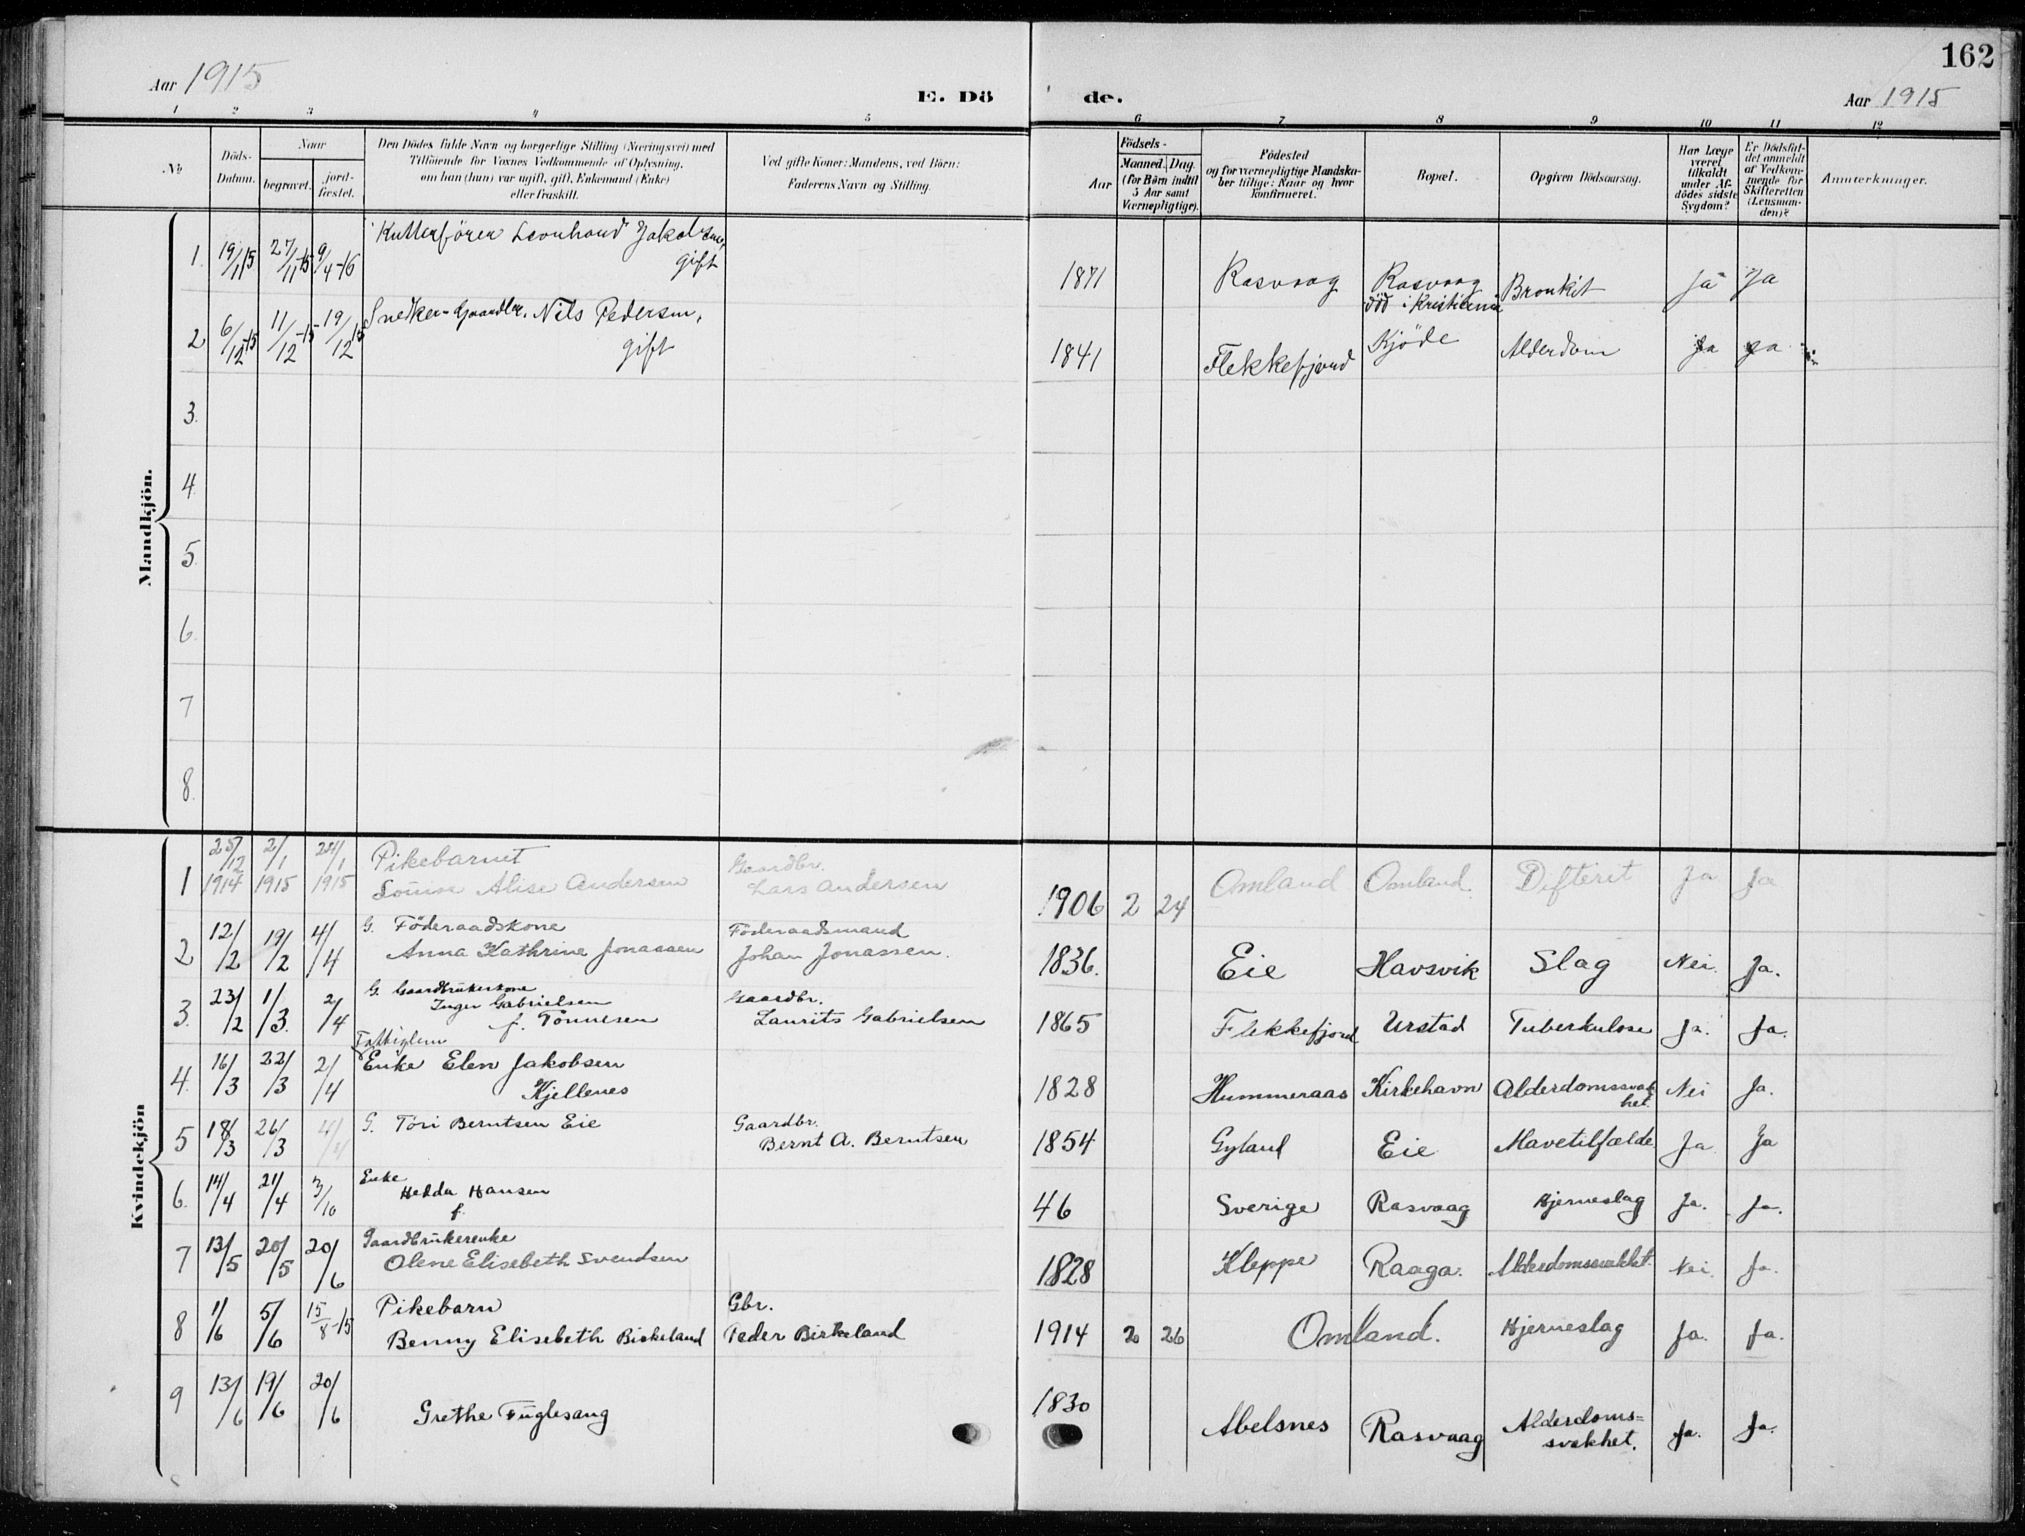 162
Aar 1915
E. Dö de.
Aar 1915
1 2 3 4 5 6 7 8 9 10 11 12
No
Döds-
Datum.
Naar
begravet.
jord-
fæstet.
Den Dödes fulde Navn og borgerlige Stilling (Næringsvei) med
Tilföiende for Voxnes Vedkommende af Oplysning,
om han (hun) var ugift, gift, Enkemand (Enke)
eller fraskilt.
Ved gifte Koner: Mandens, ved Börn:
Faderens Navn og Stilling.
Födsels-
Aar
Maaned. Dag.
(for Börn indtil
5 Aar samt
Værnepligtige).
Födested
og for værnepligtige Mandska-
ber tillige: Naar og hvor
konfirmeret.
Bopæl.
Opgiven Dödsaarsag.
Har Læge
været
tilkaldt
under Af-
dödes sidste
Sygdom?
Er Dödsfal-
det anmeldt
af Vedkom-
mende for
Skifteretten
(Lensman-
den)?
Anmærkninger.
Mandkjön.
1. 19/11 15 27/11-15 9/4-16 Kutterförer Leonhard Jakobsen, gift 1871 Rasvaag Rasvaag död i Kristiania Bronkit Ja Ja
2 6/12-15 11/12-15 19/12-15 Snedker- Nils Pedersen, gift 1841 Flekkefjord Kjöde Alderdom Ja Ja
3.
4.
5.
6.
7
8.
Kvindekjön
1 25/12 1914 2/1 1915 24/1 1915 Pikebarnet Louise Alise Andersen Gaardbr. Lars Andersen 1906 2 24 Omland Omland. Difterit Ja Ja
2 12/2 19/2 4/4 G. Föderaadskone Anna Kathrine Jonassen Föderaadsmand Johan Jonassen. 1836. Eie Havsvik Slag Nei. Ja.
3. 23/2 1/3. 2/4 G. Gaardbrukerkone Inger Gabrielsen f. Tönnesen Gaardbr. Laurits Gabrielsen 1865 Flekkefjord Urstad Tuberkulose Ja. Ja.
4. 16/3 22/3 2/4 Fattiglem Enke Elen Jakobsen Kjellenes 1828 Hummeraas Kirkehavn Alderdomssvakhet. Nei Ja.
5 18/3 26/3 4/4 G. Töri Berntsen Eie Gaardbr. Bernt A. Berntsen 1854 Gyland Eie Mavetilfælde Ja Ja
6. 14/4 21/4 3/10 Enke Hedda Hansen f. 46 Sverige Rasvaag Hjerneslag Ja. Ja.
7 13/5 20/5 20/6 Gaardbrukerenke Olene Elisebeth Svendsen 1828 Kleppe Raaga. Alderdomssvakhet. Nei. Ja.
8 1/6 5/6 15/8-15 Pikebarn Benny Elisebeth Birkeland Gbr. Peder Birkeland 1914 2 26 Omland. Hjerneslag Ja. Ja.
9 13/6 19/6 20/6 Grethe Fuglesang 1830 Abelsnes Rasvaag Alderdoms= svakhet. Ja. Ja.